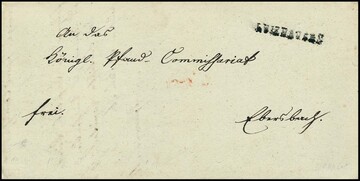 An das
Königl. Pfand-Commissariat
frei.
Ebersbach.